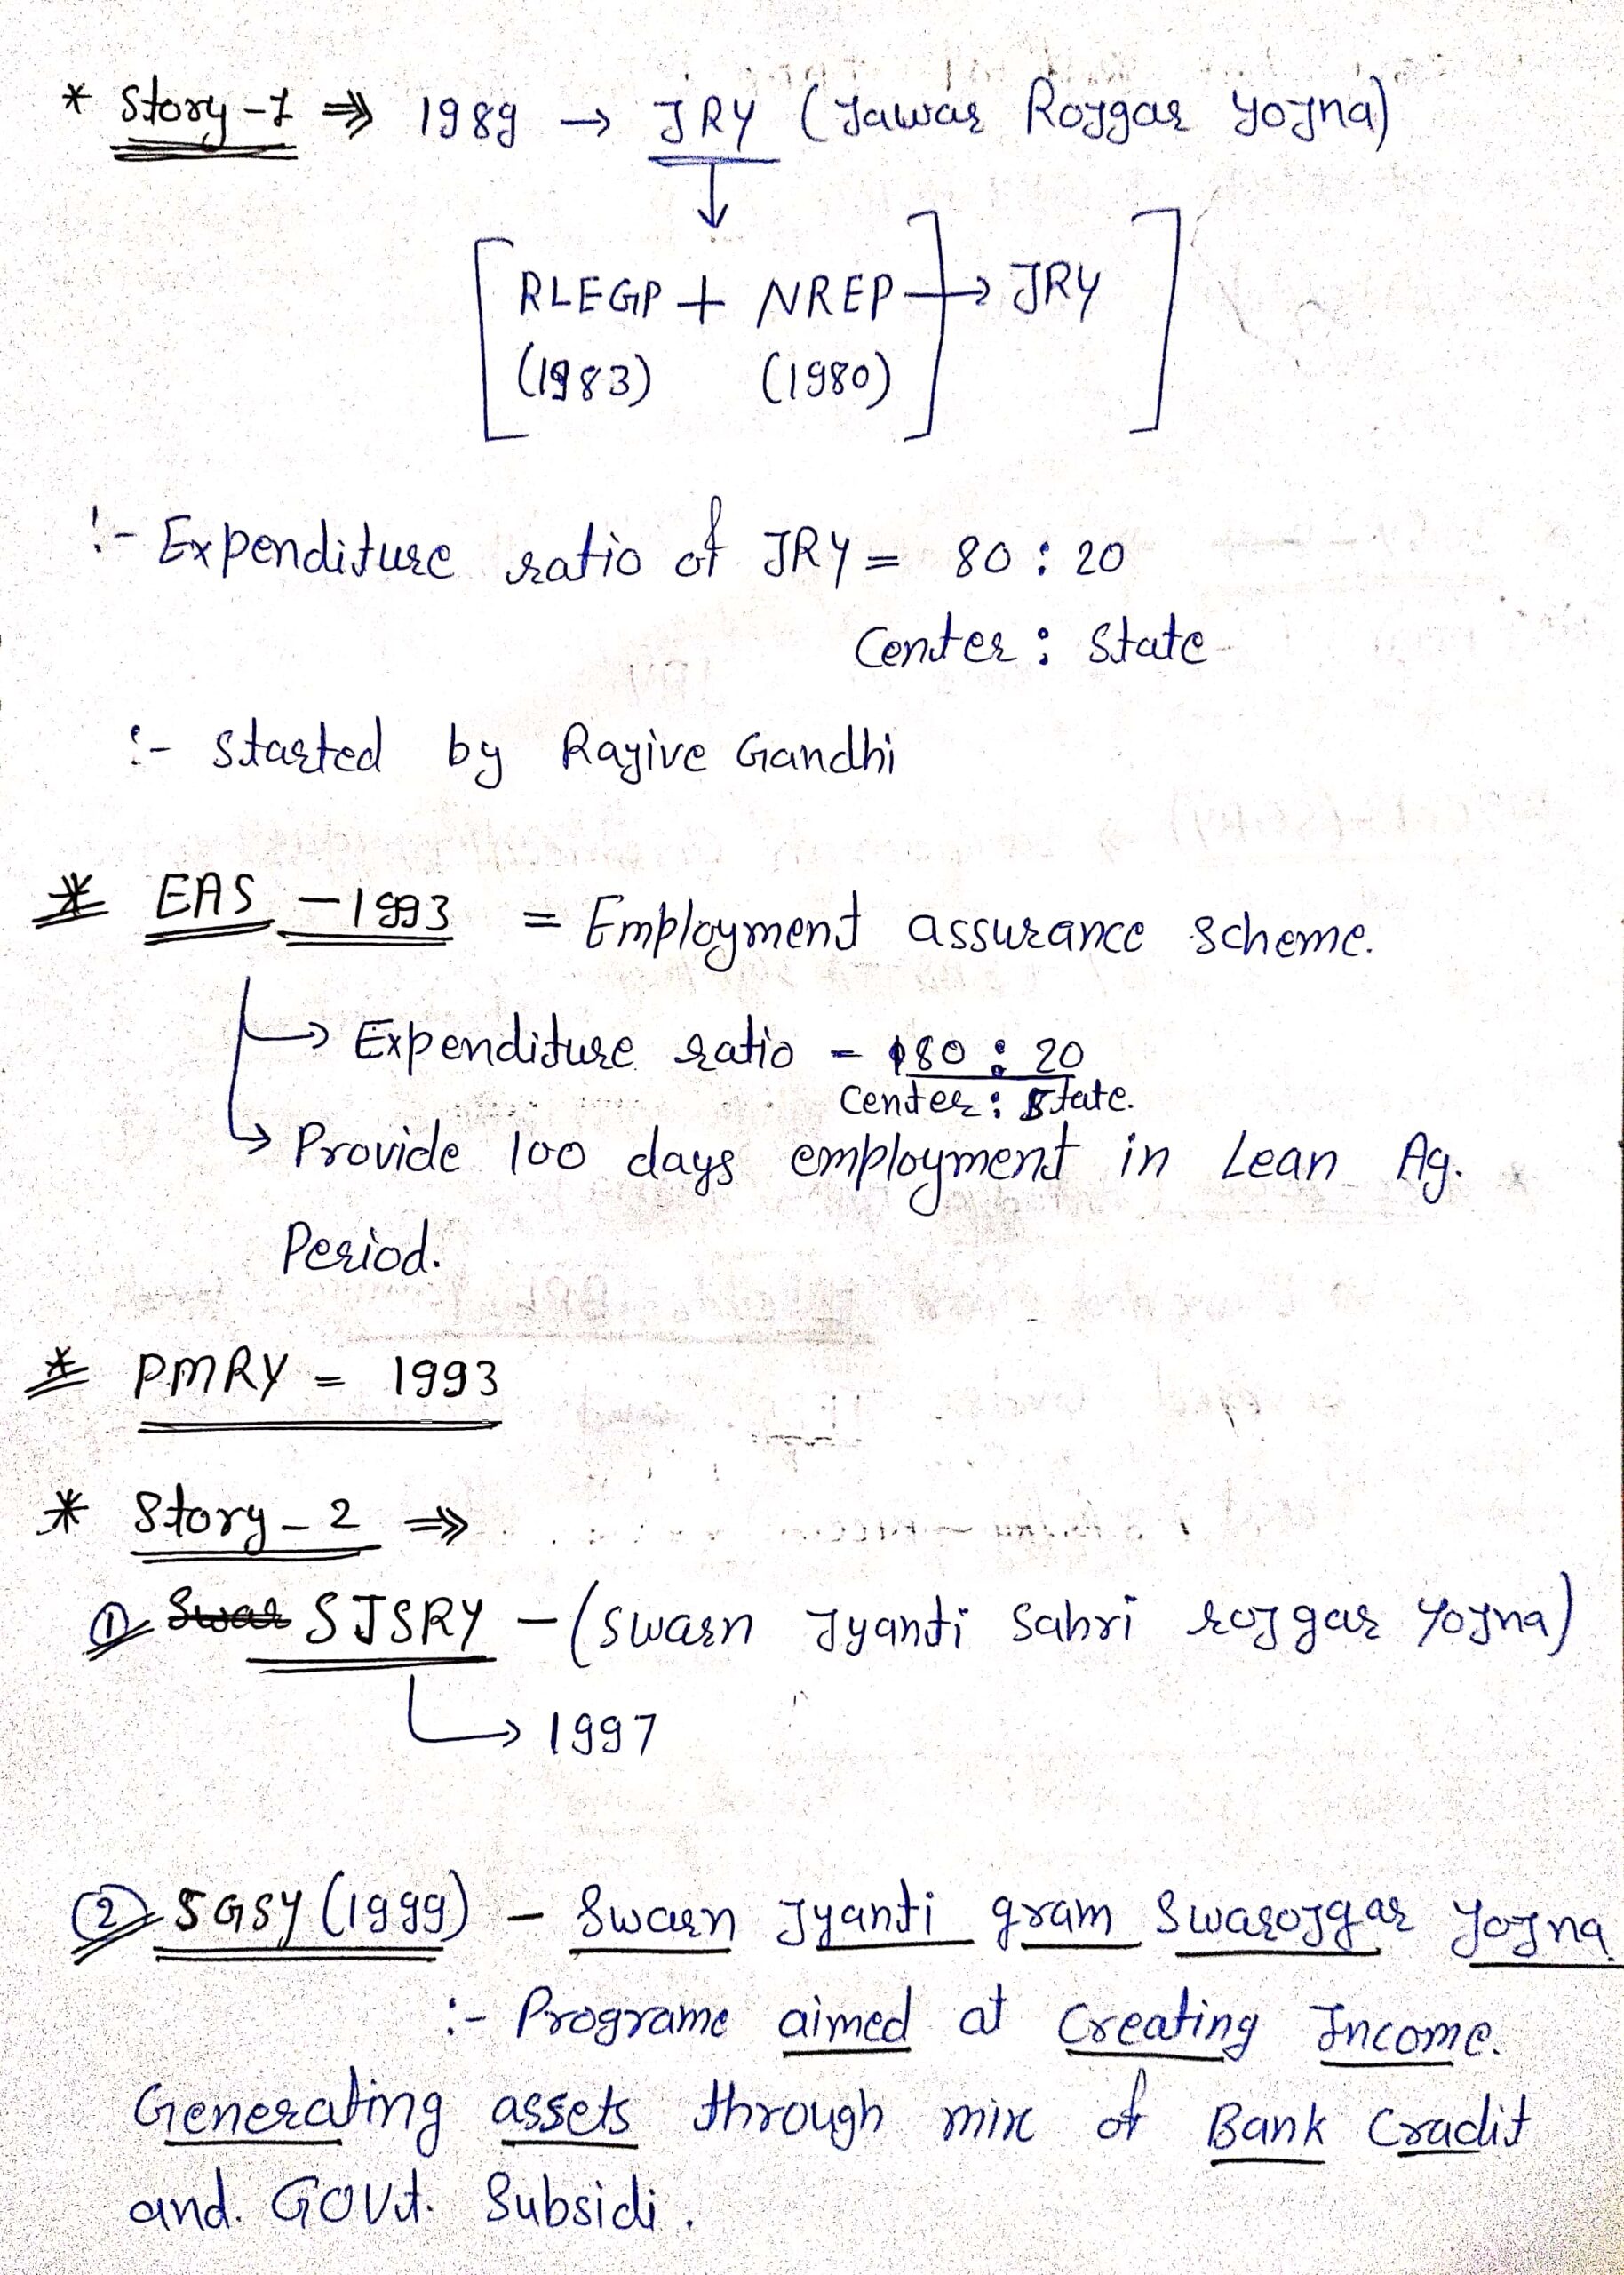 * Story-1 ⇒ 1989 → JRY (Jawar Rojgar Yojna)
↓
[RLEGP + NREP] → JRY]
(1983) (1980)
:- Expenditure ratio of JRY = 80 : 20
Center : State
:- Started by Rajive Gandhi
* EAS - 1993 = Employment assurance scheme.
→ Expenditure ratio - 80 : 20
Center : State.
→ Provide 100 days employment in Lean Ag.
Period.
* PMRY = 1993
* Story-2 ⇒
① Swar SJSRY - (Swarn Jyanti Sahri rojgar Yojna)
→ 1997
② SGSY (1999) - Swarn Jyanti gram Swarojgar Yojna
:- Programe aimed at Creating Income.
Generating assets through mix of Bank Cradit
and. Govt. Subsidi.